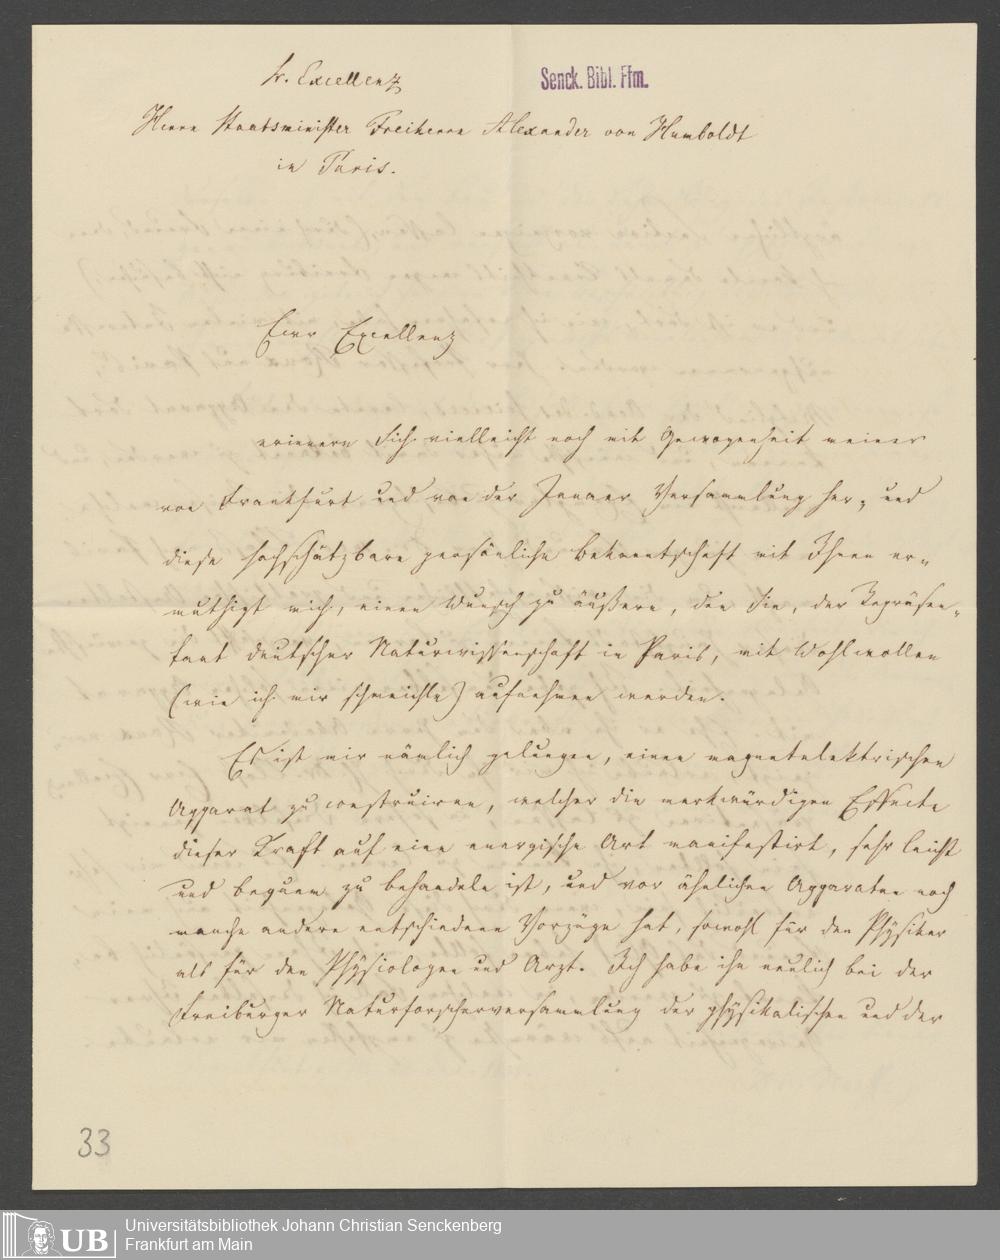 Sr. Excellenz
Senck. Bibl. Ffm.
Herrn Staatsminister Freiherrn Alexander von Humboldt
in Paris.
Euer Excellenz
erinnern Sich vielleicht noch mit Gewogenheit meiner
von Frankfurt und von der Jenaer Versammlung her, und
diese hochschätzbare persönliche Bekanntschaft mit Ihnen er-
muthigt mich, einen Wunsch zu äußern, den Sie, der Repräsen-
tant deutscher Naturwissenschaft in Paris, mit Wohlwollen
(wie ich mir schmeichle) aufnehmen werden.
Es ist mir nämlich gelungen, einen magnetelektrischen
Apparat zu construiren, welcher die merkwürdigen Effecte
dieser Kraft auf eine energische Art manifestirt, sehr leicht
und bequem zu behandeln ist, und vor ähnlichen Apparaten noch
manche andere entschiedene Vorzüge hat, sowohl für den Physiker
als für den Physiologen und Arzt. Ich habe ihn neulich bei der
Freiburger Naturforscherversammlung der physikalischen und der
33
UB
Universitätsbibliothek Johann Christian Senckenberg
Frankfurt am Main